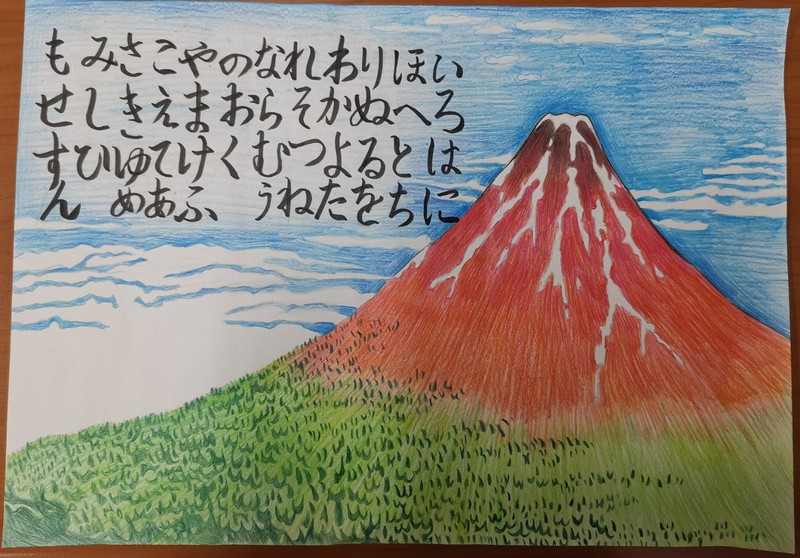 いろはに
ほへとち
りぬるを
わかよた
れそつね
ならむう
のおく
やまけふ
こえてあ
さきゆめ
みしひ
もせすん